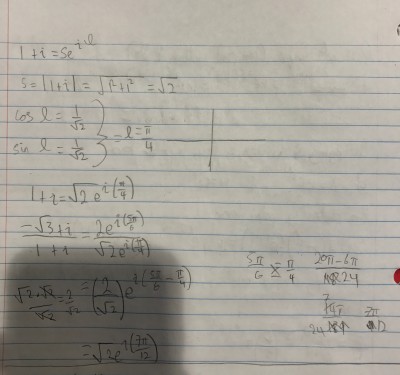 1+i = Se^{iℓ}
S = |1+i| = √(1²+1²) = √2
cos ℓ = 1/√2
sin ℓ = 1/√2 } - ℓ = π/4
1+i = √2 e^{i(π/4)}
(-√3+i)/(1+i) = 2e^{i(5π/6)}/√2e^{i(π/4)}
√2·√2/√2 = 2/√2 = (2/√2) e^{i(5π/6 - π/4)}
= √2e^{i(7π/12)}
5π/6 - π/4
20π-6π/24
14π/24
7π/12